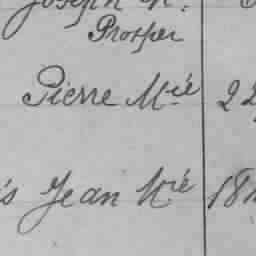 Joseph M.
Prosper
Pierre Mié 22
is Jean Mié 18